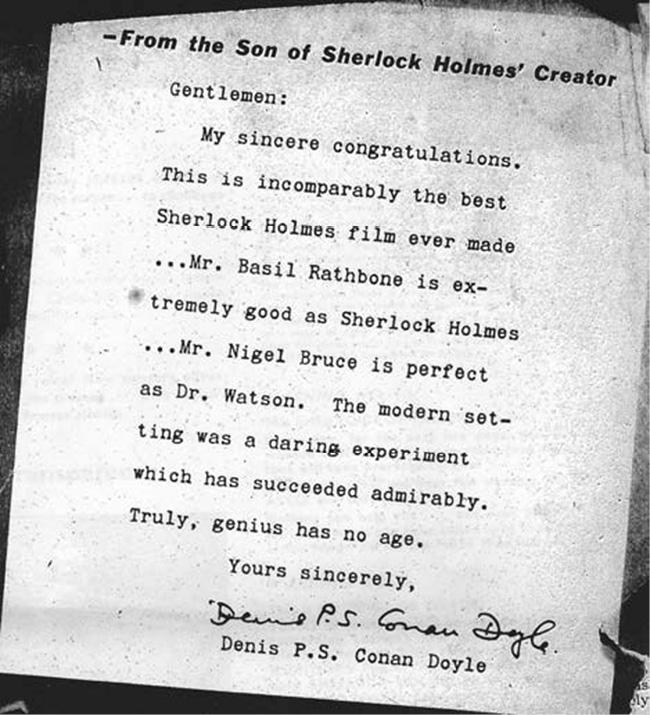 —From the Son of Sherlock Holmes' Creator
Gentlemen:
My sincere congratulations.
This is incomparably the best
Sherlock Holmes film ever made
...Mr. Basil Rathbone is ex-
tremely good as Sherlock Holmes
...Mr. Nigel Bruce is perfect
as Dr. Watson. The modern set-
ting was a daring experiment
which has succeeded admirably.
Truly, genius has no age.
Yours sincerely,
Denis P.S. Conan Doyle.
Denis P.S. Conan Doyle